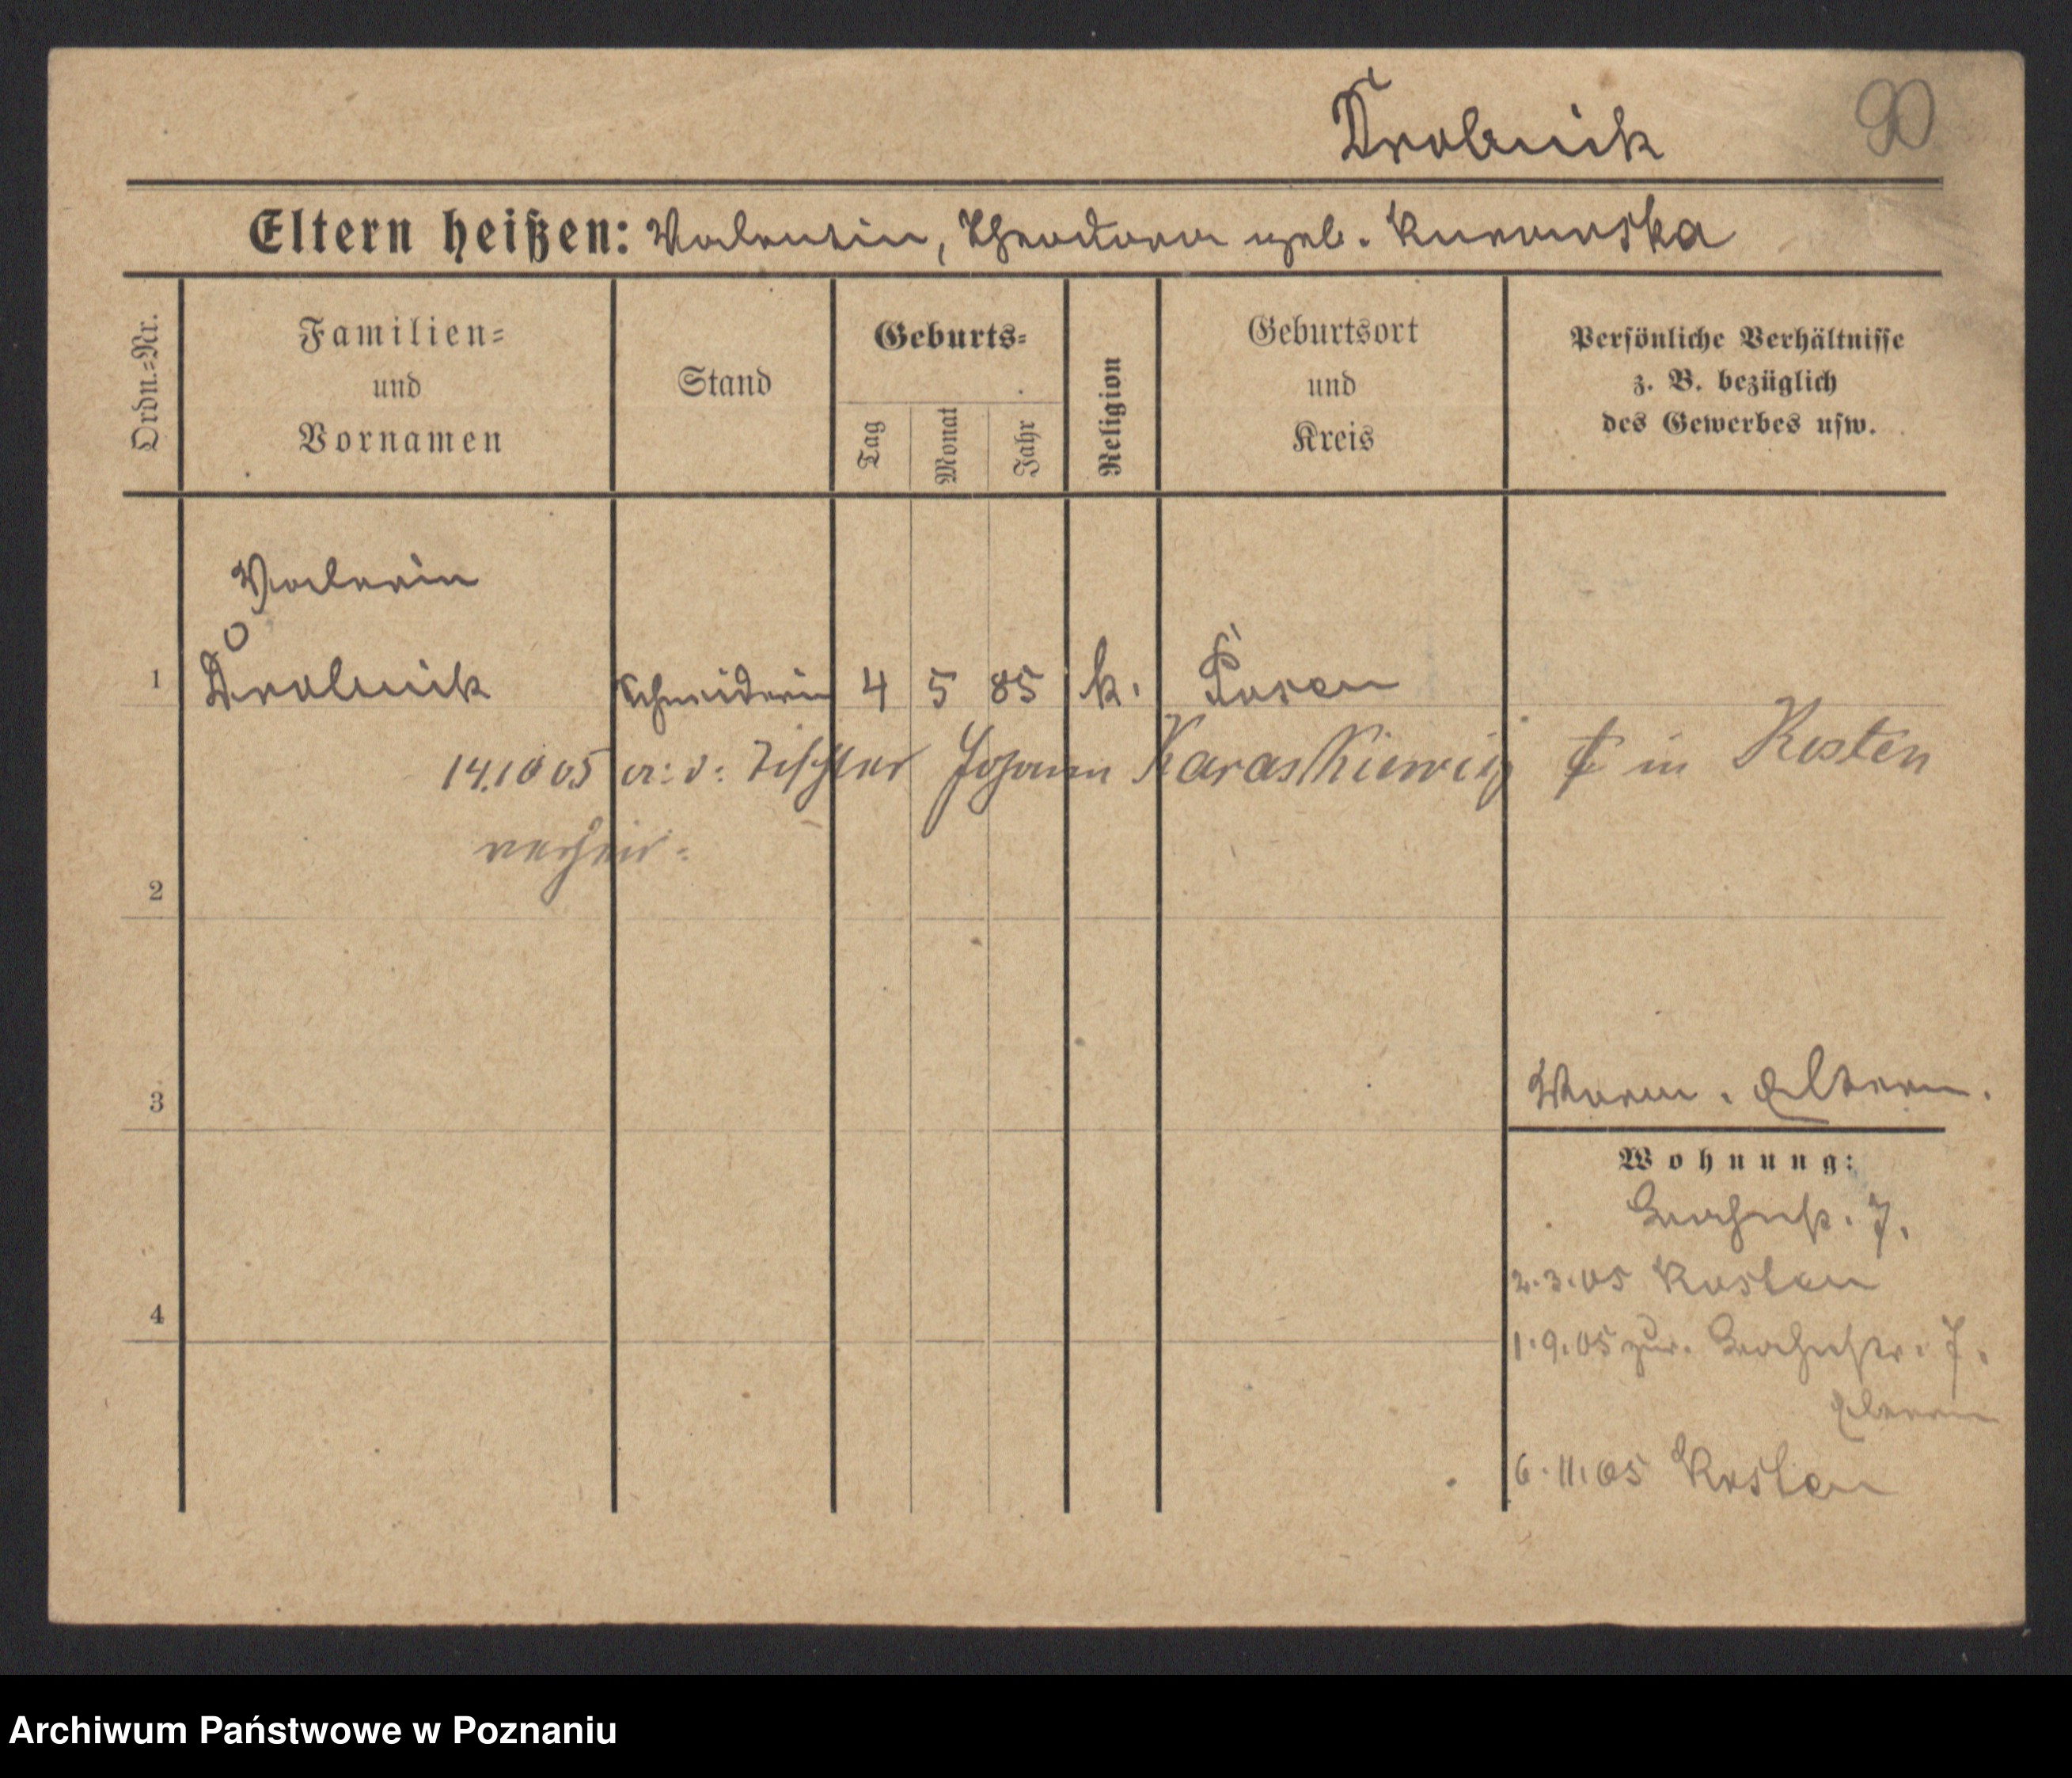 Drobnik 90
Eltern heißen: Valentin, Theodora geb. Kurowska
Ordn.=Nr.
Familien=
und
Vornamen
Stand
Geburts=
Tag
Monat
Jahr
Religion
Geburtsort
und
Kreis
Persönliche Verhältnisse
z. B. bezüglich
des Gewerbes usw.
Valeria
1 Drobnik Schneiderin 4 5 85 k. Posen
14.10 05 a: d: Tischler Johann Karaskiewicz in Kosten
verheir:
2
3
Eltern.
Wohnung:
7.
4
2.3.05 Kosten
1.9.05 zur. 7.
Eltern
6.11.05 Kosten
Archiwum Państwowe w Poznaniu